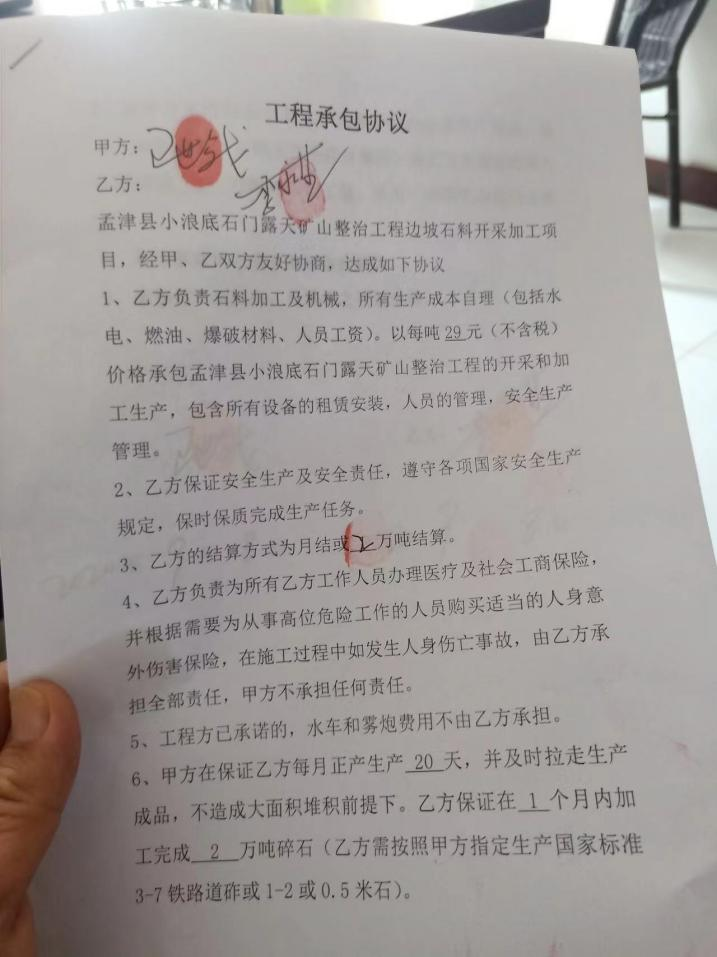 工程承包协议
甲方：
乙方：
孟津县小浪底石门露天矿山整治工程边坡石料开采加工项
目，经甲、乙双方友好协商，达成如下协议
1、乙方负责石料加工及机械，所有生产成本自理（包括水
电、燃油、爆破材料、人员工资）。以每吨29元（不含税）
价格承包孟津县小浪底石门露天矿山整治工程的开采和加
工生产，包含所有设备的租赁安装，人员的管理，安全生产
管理。
2、乙方保证安全生产及安全责任，遵守各项国家安全生产
规定，保时保质完成生产任务。
3、乙方的结算方式为月结或万吨结算。
4、乙方负责为所有乙方工作人员办理医疗及社会工商保险，
并根据需要为从事高位危险工作的人员购买适当的人身意
外伤害保险，在施工过程中如发生人身伤亡事故，由乙方承
担全部责任，甲方不承担任何责任。
5、工程方已承诺的，水车和雾炮费用不由乙方承担。
6、甲方在保证乙方每月正产生产 20 天，并及时拉走生产
成品，不造成大面积堆积前提下。乙方保证在 1 个月内加
工完成 2 万吨碎石（乙方需按照甲方指定生产国家标准
3-7铁路道砟或1-2或0.5米石）。